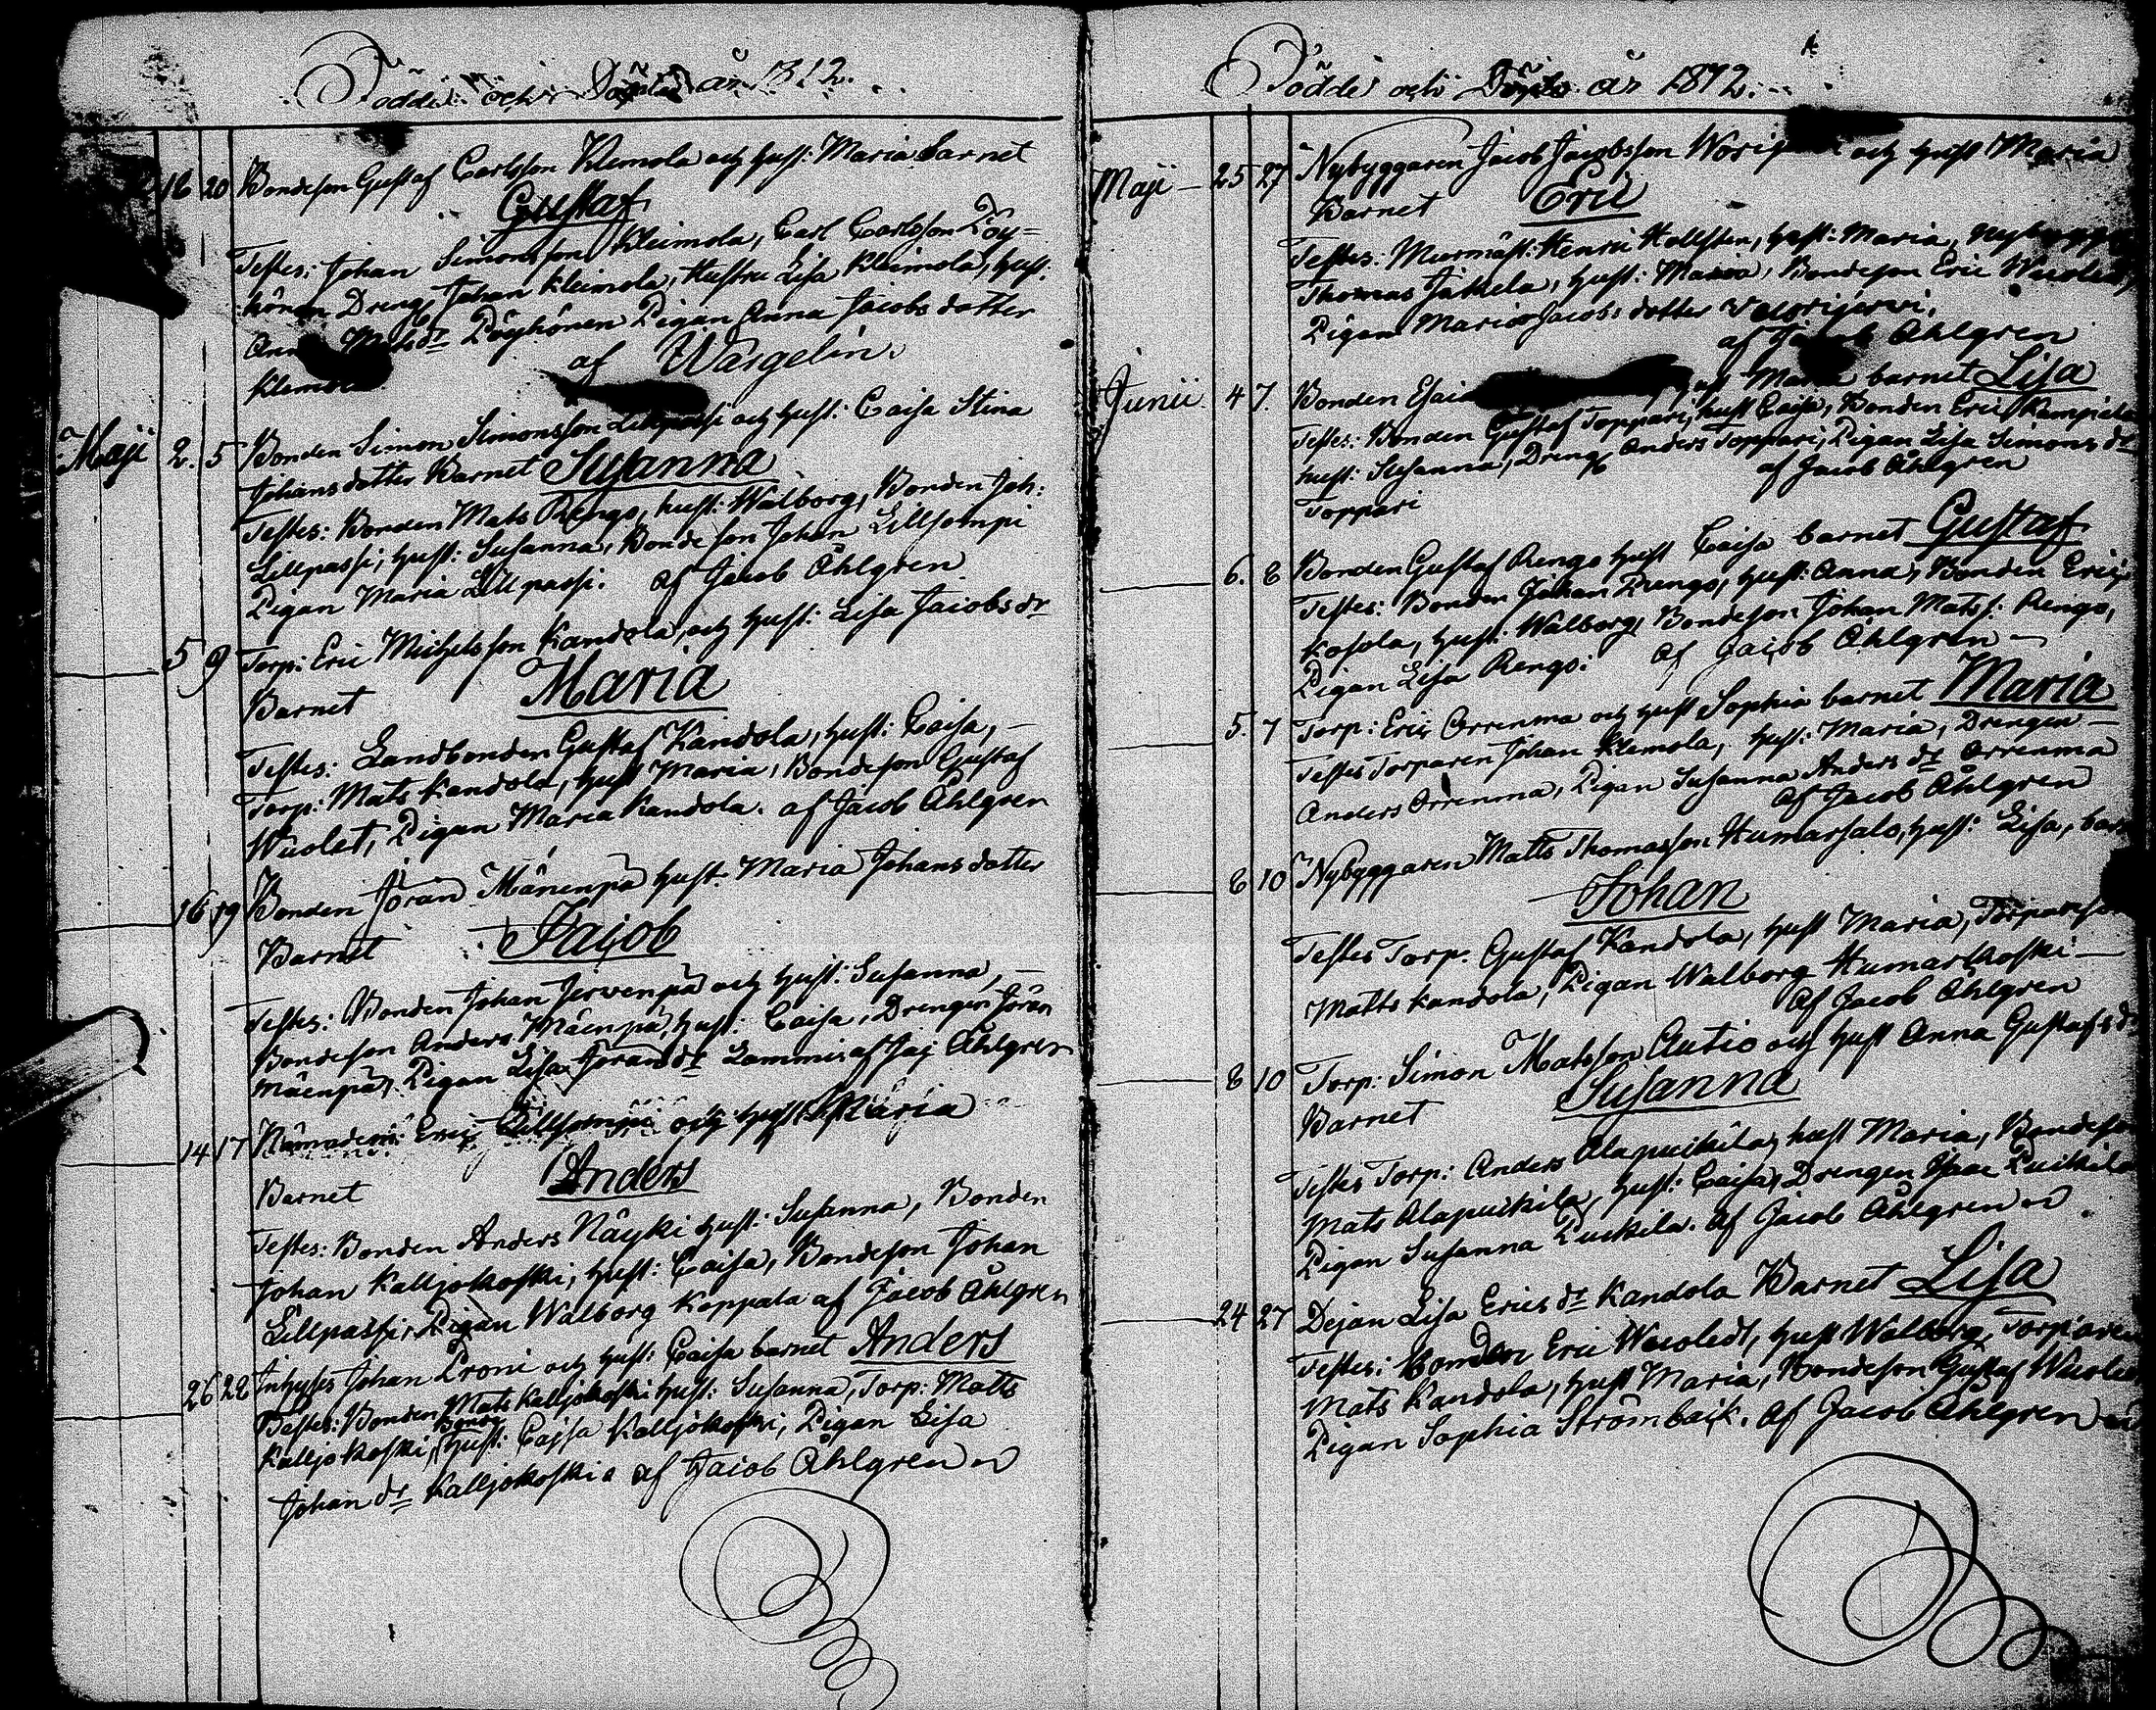 Födde och Döpte år 1812.
18 20 Bondeson Gustaf Carlsson Klemola och hust: Maria Barnet
Gustaf
Testes: Johan Simonsson Kleimola, Carl Carlsson Pöy=
hönen Dreng Johan Kleimola, Hustru Lisa Kleimola, hust:
Anna dr Pöyhönen Pigan Anna Jacobs dotter
Klemola af Wargelin.
Maji 2. 5 Bonden Simon Simonsson Lillpassi och hust: Caisa Stina
Johansdotter Barnet Susanna
Testes: Bonden Mats Rengo, hust: Walborg, Bonden Joh:
Lillpassi, hust: Susanna, Bondeson Johan Lillsompi
Pigan Maria Lillpassi. af Jacob Åhlgren
5 9 Torp: Eric Michelsson Kandola, och hust: Lisa Jacobs dr
Barnet Maria
Testes: Landbonden Gustaf Kandola, hust: Caisa,
Torp: Mats Kandola, hust Maria, Bondeson Gustaf
Wuolet, Pigan Maria Kandola. af Jacob Åhlgren
16 19 Bonden Jöran Mäenpä hust. Maria Johans dotter
Barnet Jacob
Testes: Bonden Johan Jervenpä och hust: Susanna,
Bondeson Anders Mäenpä, hust: Caisa, Drengen Jöran
Mäenpä, Pigan Lisa Jörans dr Lammi af Jac Åhlgren
14 17 Eric Lillsompi och hust Maria
Barnet Anders
Testes: Bonden Anders Näyki hust: Susanna, Bonden
Johan Kalljokoski, hust: Caisa, Bondeson Johan
Lillpassi, Pigan Walborg Koppala af Jacob Åhlgren
26 28 Inhyses Johan Proni och hust: Caisa barnet Anders
Testes: Bonden Mats Kalljokoski hust: Susanna, Torp: Matts
Kalljokoski, hust: Cajsa Kalljokoski, Pigan Lisa
Johan dr Kalljokoski. af Jacob Åhlgren
Födde och Döpte år 1812.
Maji 25 27 Nybyggaren Jacob Jacobsson och hust Maria
Barnet Eric
Testes: Murmäst: Henric Hollsten, hust: Maria,
Thomas Jäkela, hust: Maria, Bondeson Eric Wuolet,
Pigan Maria Jacobs dotter Wuorijerwi.
af Jacob Åhlgren
Junii 4 7. Bonden Esai hust Maria barnet Lisa
Testes: Bonden Gustaf Toppari, hust Caisa, Bonden Eric
hust: Susanna, Dreng Anders Toppari, Pigan Lisa Simons dr
Toppari af Jacob Åhlgren
6. 8 Bonden Gustaf Rengo hust Caisa barnet Gustaf
Testes: Bonden Johan Rengo, hust: Anna, Bonden Eric
Kosola, hust: Walborg, Bondeson Johan Matss: Rengo,
Pigan Lisa Rengo: af Jacob Åhlgren
5. 7 Torp: Eric Orrenma och hust Sophia barnet Maria
Testes Torparen Johan Klemola, hust: Maria, Drengen
Anders Orrenma, Pigan Susanna Anders dr Orrenma
af Jacob Åhlgren
8 10 Nybyggaren Matts Thomasson Humarsalo, hust: Lisa,
Johan
Testes Torp: Gustaf Kandola, hust Maria,
Matts Kandola, Pigan Walborg Humarkoski
af Jacob Åhlgren
8 10 Torp: Simon Matsson Autio och hust Anna Gustafs dr
Barnet Susanna
Testes Torp: Anders Alapuikila, hust Maria,
Mats Alapuikila, hust: Caisa, Drengen Isaac Puikila
Pigan Susanna Puikila. af Jacob Åhlgren
24 27 Dejan Lisa Erics dr Kandola Barnet Lisa
Testes: Bonden Eric Wuoledt, hust Walborg, Torparen
Mats Kandola, hust Maria, Bondeson Gustaf Wuolet
Pigan Sophia Strömbäck. af Jacob Åhlgren